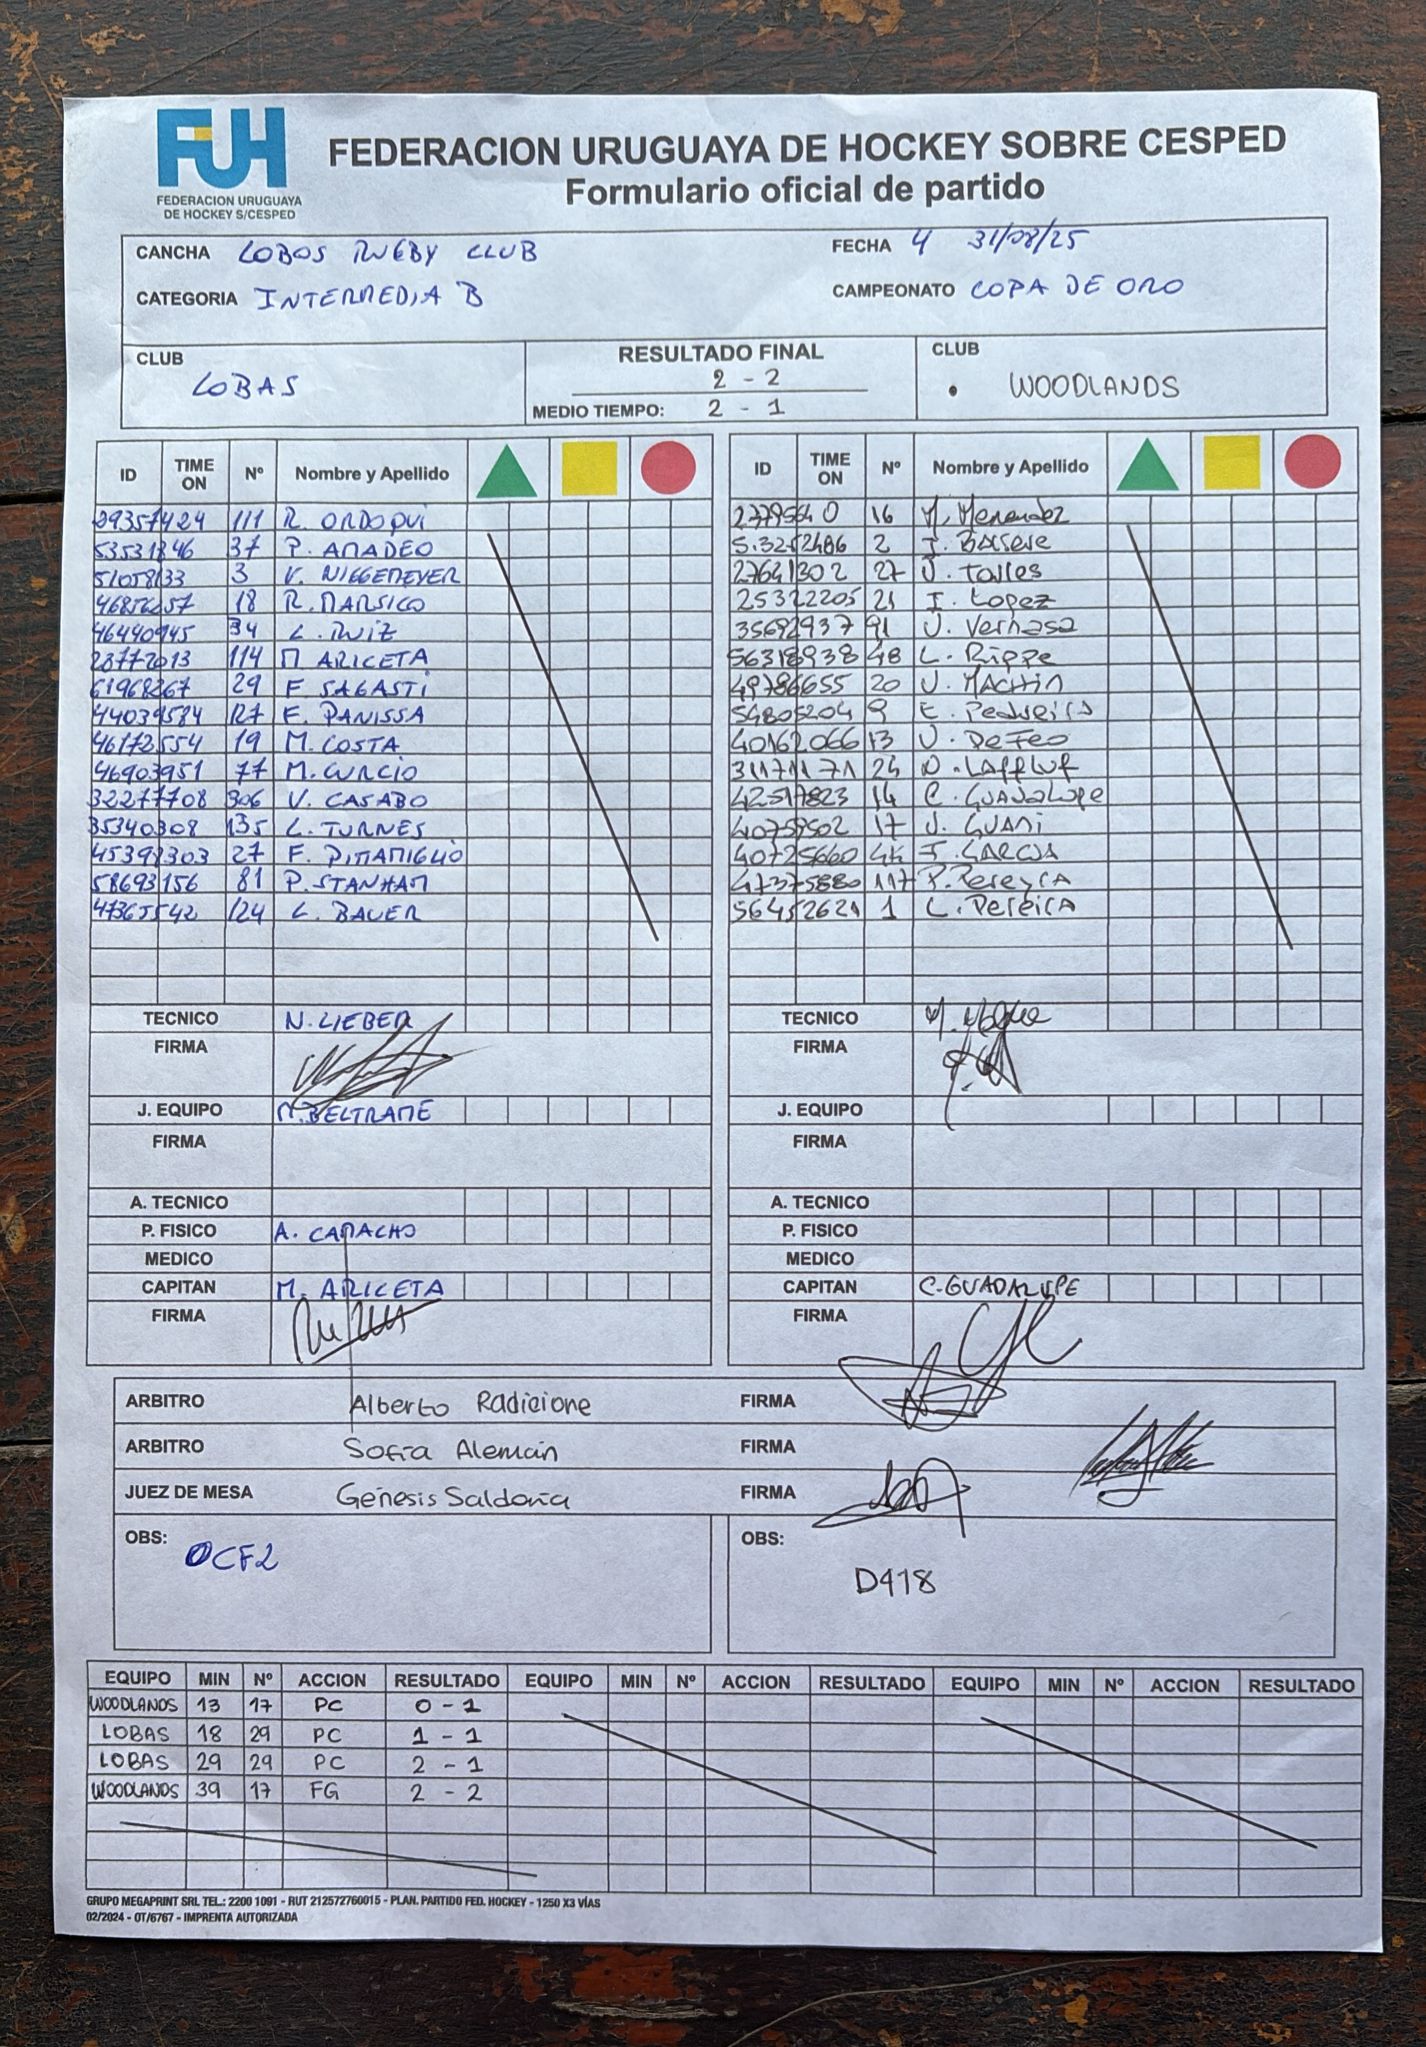 FUH
FEDERACION URUGUAYA
DE HOCKEY S/CESPED
FEDERACION URUGUAYA DE HOCKEY SOBRE CESPED
Formulario oficial de partido
CANCHA LOBOS RUGBY CLUB FECHA 4 31/08/25
CATEGORIA INTERMEDIA B CAMPEONATO COPA DE ORO
CLUB LOBAS RESULTADO FINAL 2 - 2 CLUB WOODLANDS
MEDIO TIEMPO: 2 - 1
ID TIME ON Nº Nombre y Apellido ID TIME ON Nº Nombre y Apellido
29357424 111 R. ORDOQUI 16 M. Menendez
37 P. AMADEO 5.3252486 2
3 V. NIGGEMEYER 27641302 27 J. Torres
18 R. MARSICO 25322205 21 I. Lopez
46440945 34 L. RUIZ 35692937 91
114 M. ARICETA 56318938 48 L. Rippe
61968267 29 F. SAGASTI 49786655 20 J. MACHIN
44039584 127 F. PANISSA 54805204 9 E. Pedreira
46172554 19 M. COSTA 40162066 13 J. DeFeo
46903951 77 M. CURCIO 31171171 24 Laffluf
32277708 306 V. CASABO 42517823 14 C. GUADALUPE
35340308 135 L. TURNES 40759502 17 J. GUANI
45398303 27 F. PIMAMIGLIO 40725660 44 GARCIA
58693156 81 P. STANHAM 47375880 117 P. Pereyra
47365542 124 L. BAUER 56452621 1 L. Pereira
TECNICO N. LIEBER TECNICO
FIRMA FIRMA
J. EQUIPO BELTRAME J. EQUIPO
FIRMA FIRMA
A. TECNICO A. TECNICO
P. FISICO A. CAMACHO P. FISICO
MEDICO MEDICO
CAPITAN M. ARICETA CAPITAN C. GUADALUPE
FIRMA FIRMA
ARBITRO Alberto Radicione FIRMA
ARBITRO Sofía Alemán FIRMA
JUEZ DE MESA Génesis Saldaña FIRMA
OBS: OCF2 OBS: D418
EQUIPO MIN Nº ACCION RESULTADO EQUIPO MIN Nº ACCION RESULTADO EQUIPO MIN Nº ACCION RESULTADO
WOODLANDS 13 17 PC 0 - 1
LOBAS 18 29 PC 1 - 1
LOBAS 29 29 PC 2 - 1
WOODLANDS 39 17 FG 2 - 2
GRUPO MEGAPRINT SRL TEL.: 2200 1091 - RUT 212572760015 - PLAN. PARTIDO FED. HOCKEY - 1250 X3 VÍAS
02/2024 - OT/6767 - IMPRENTA AUTORIZADA